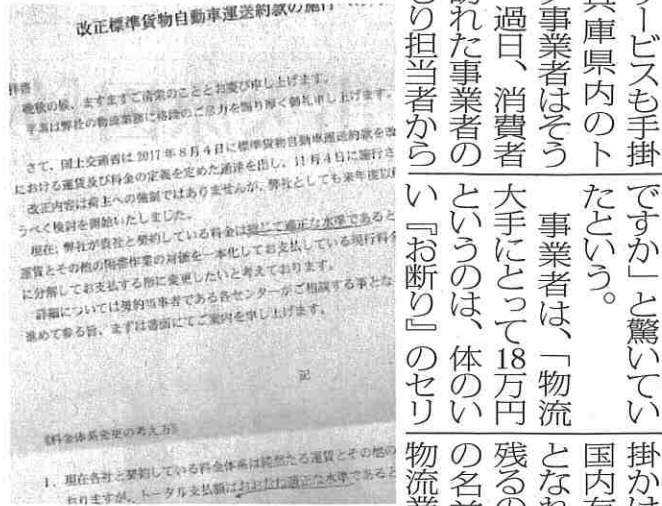 改正標準貨物自動車運送約款の施行
拝啓
晩秋の候、ますますご清栄のこととお慶び申し上げます。
平素は弊社の物流業務に格段のご尽力を賜り厚く御礼申し上げます。
さて、国土交通省は2017年8月4日に標準貨物自動車運送約款を改
における運賃及び料金の定義を定めた通達を出し、11月4日に施行さ
改正内容は荷主への強制ではありませんが、弊社としても来年度以
うべく検討を開始いたしました。
現在、弊社が貴社と契約している料金は総じて適正な水準であると
運賃とその他の附帯作業の対価を一本化してお支払している現行料金
に分解してお支払する形に変更したいと考えております。
詳細については契約当事者である各センターがご相談する事とな
進めて参る旨、まずは書面にてご案内を申し上げます。
記
《料金体系変更の考え方》
1. 現在各社と契約している料金体系は純然たる運賃とその他の
おりますが、トータル支払額はおおむね適正な水準であると
サービスも手掛
兵庫県内のト
ク事業者はそう
過日、消費者
訪れた事業者の
もり担当者から
ですか」と驚いてい
たという。
事業者は、「物流
大手にとって18万円
というのは、体のい
い『お断り』のセリ
掛かは
国内有
となれ
残るの
の名前
物流業